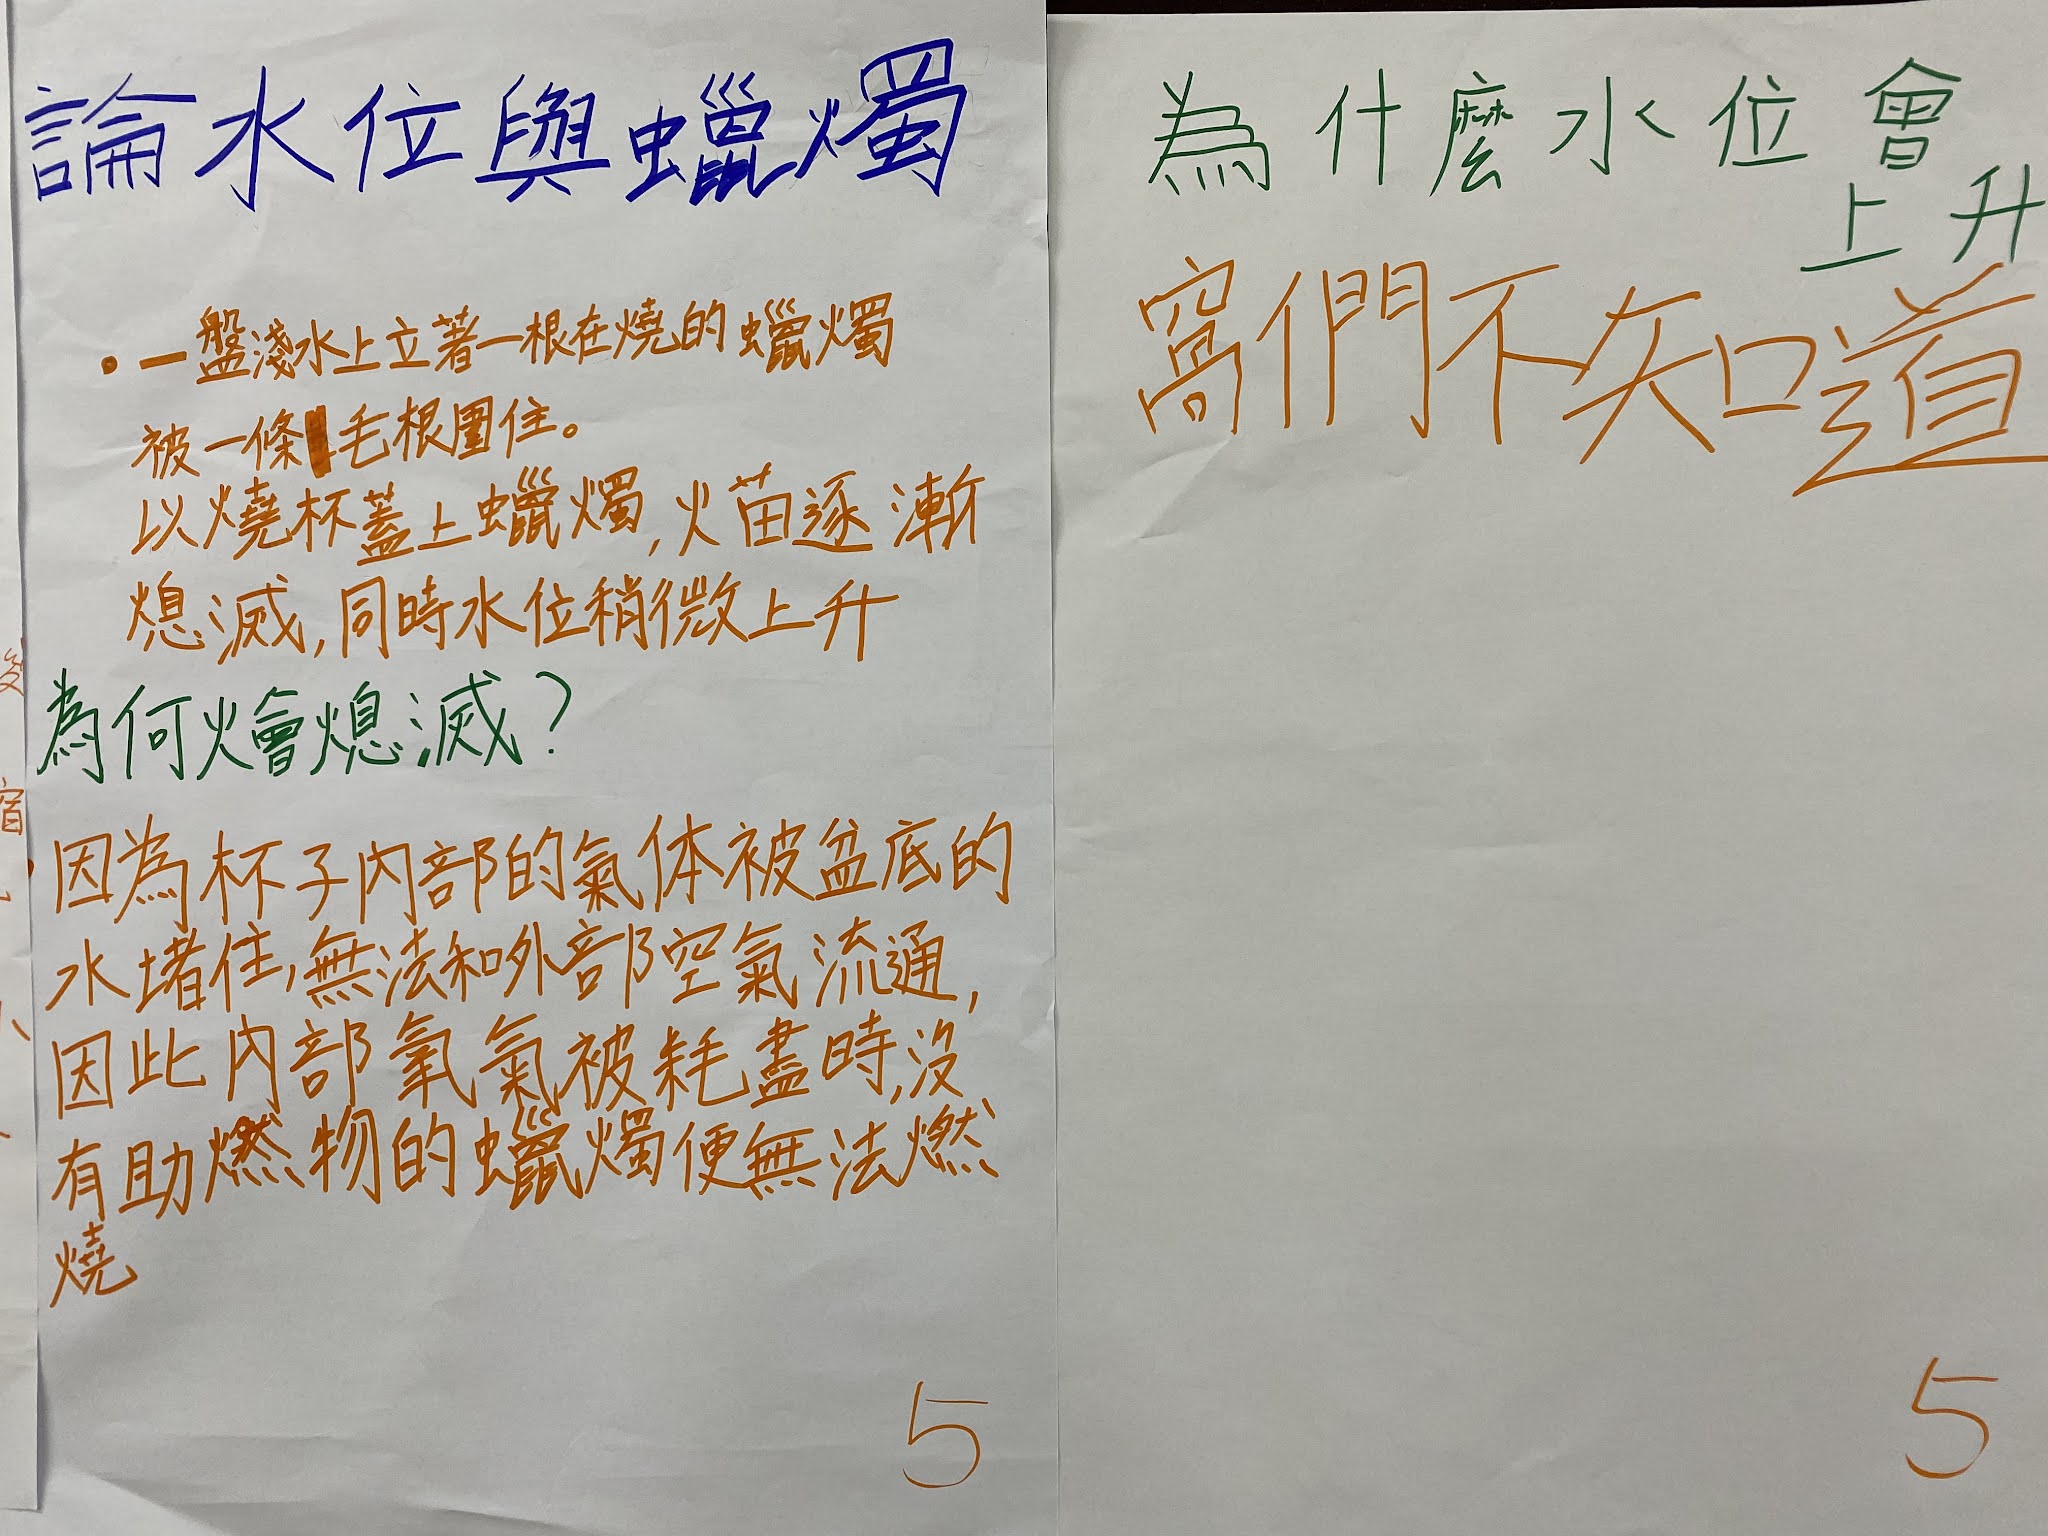 論水位與蠟燭
•一盤淺水上立著一根在燒的蠟燭
被一條毛根圍住。
以燒杯蓋上蠟燭,火苗逐漸
熄滅,同時水位稍微上升
為何火會熄滅?
因為杯子內部的氣体被盆底的
水堵住,無法和外部空氣流通,
因此內部氧氣被耗盡時,沒
有助燃物的蠟燭便無法燃
燒
5
為什麼水位會
上升
窩們不知道
5